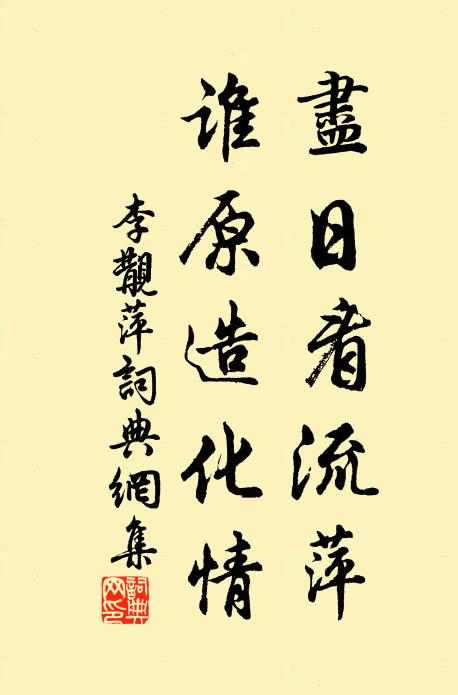 盡日看流萍
誰原造化情
李觀萍詞典網集
詞典網印